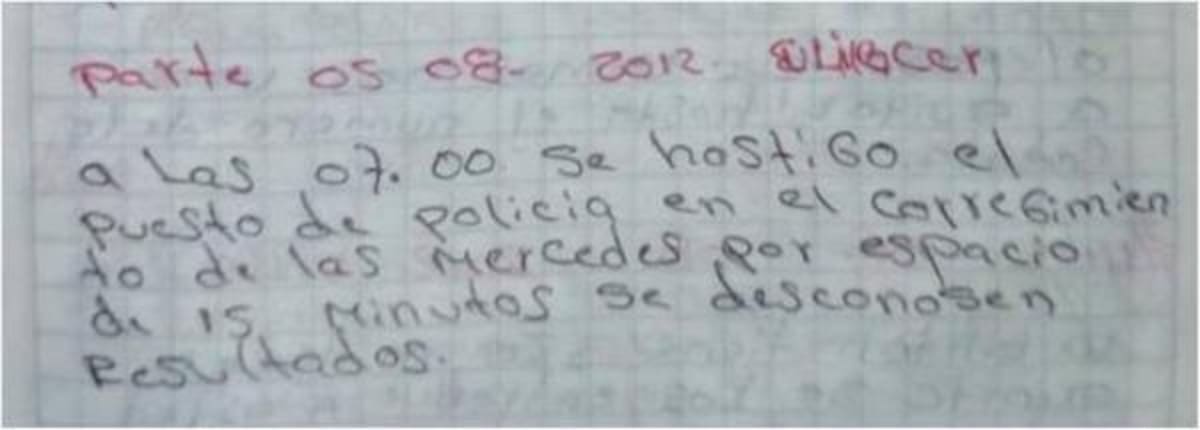 parte 05 08- 2012
a las 07.00 se hostiGo el
puesto de policia en el correGimien
to de las Mercedes por espacio
de 15 Minutos se desconosen
Resultados.